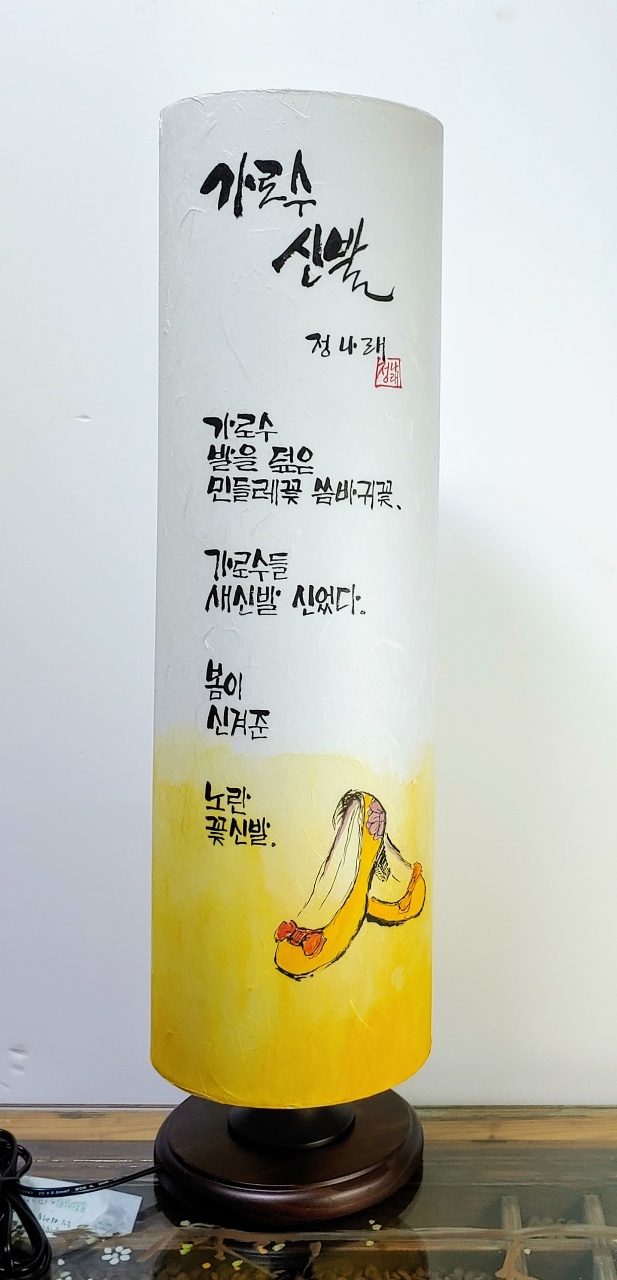 가로수
신발
정나래
정나래
가로수
발을 덮은
민들레꽃 씀바귀꽃.
가로수들
새신발 신었다.
봄이
신겨준
노란
꽃신발.